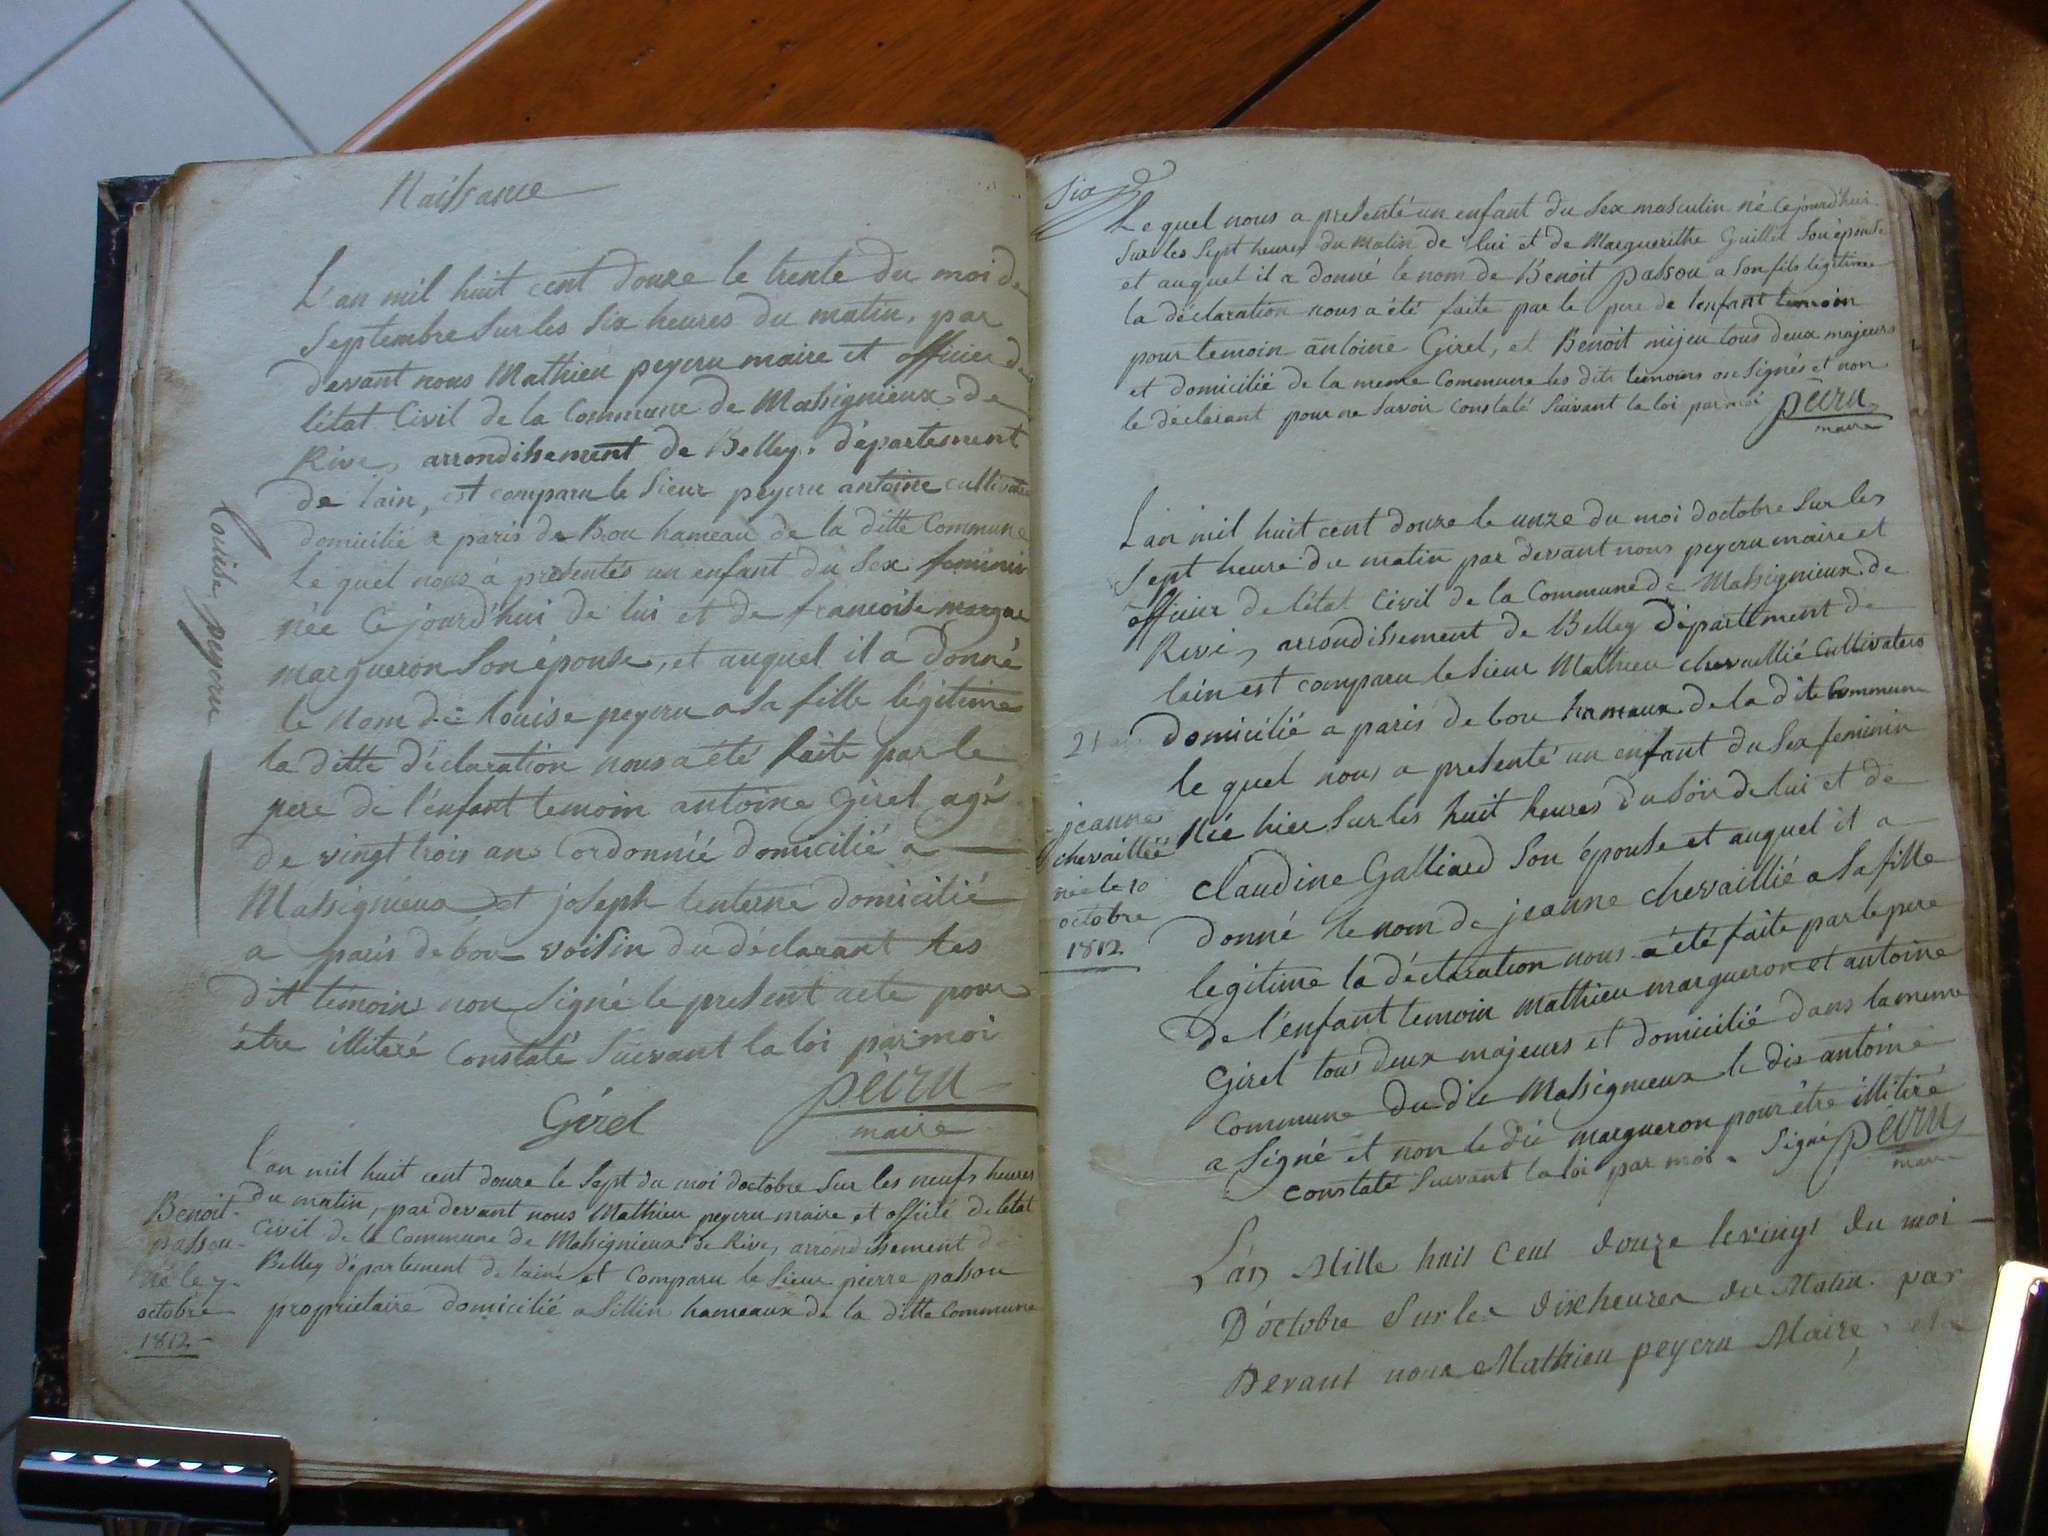 Naissance
L'an mil huit cent douze le trente du moi de
Septembre Sur les Six heures du matin, par
devant nous Mathieu peycru maire et officier de
l'état Civil de la Commune de Massignieux de
Rives arrondissement de Belley, département
de lain, est comparu le Sieur peycru antoine cultivateur
domicilié a paris de Bou hameau de la ditte Commune
Le quel nous à presentés un enfant du Sex feminin
née Ce jourd'hui de lui et de francoise margue
margueron Son épouse, et auquel il a donné
le nom de louise peycru a Sa fille légitime
la ditte déclaration nous a été faite par le
pere de l'enfant temoin antoine Girel agé
de vingt trois ans Cordonnié domicilié a
Massignieux et joseph tenterne domicilié
a paris de bou voisin du déclarant Les
dit temoins non Signé le present acte pour
être illiteré Constaté Suivant la loi par moi
Girel
pèicru
maire
Louise peycru
l'an mil huit cent douze le Sept du moi doctobre Sur les neufs heures
du matin, par devant nous Mathieu peycru maire et officié de letat
Civil de la Commune de Massignieux de Rives, arrondissement de
Belley département de lain est Comparu le Sieur pierre passou
proprietaire domicilié a Sillin hameaux de la ditte Commune
Benoit
passou
né le 7
octobre
1812
Six
Le quel nous a presenté un enfant du Sex masculin né Ce jourd'hui
Sur les Sept heures du matin de lui et de Marguerithe Guillet Son épouse
et auquel il a donné le nom de Benoit passou a Son fils légitime
la déclaration nous a été faite par le pere de lenfant temoin
pour temoin antoine Girel, et Benoit mijeu tous deux majeurs
et domicilié de la meme Commune les dits temoins on Signés et non
le déclarant pour ne Savoir Constaté Suivant la loi par moi pèicru
maire
L'an mil huit cent douze le unze du moi doctobre Sur les
Sept heure du matin par devant nous peycru maire et
officier de létat Civil de la Commune de Massignieux de
Rives arrondissement de Belley département de
lain est comparu le Sieur Mathieu chevaillié Cultivateur
domicilié a paris de bou hameaux de la dite Commune
le quel nous a presenté un enfant du Sex feminin
Née hier Sur les huit heures du Soir de lui et de
Claudine Galliard Son épouse et auquel il a
donné le nom de jeanne chevaillié a Sa fille
legitime la déclaration nous a été faite par le pere
de l'enfant temoin mathieu margueron et antoine
Girel tous deux majeurs et domicilié dans la meme
Commune du dit Massignieux le dit antoine
a Signé et non le dit margueron pour être illiteré
Constaté Suivant la loi par moi. Signé pèicru
maire
21
jeanne
chevailliée
née le 10
octobre
1812
L'an Mille huit Cent douze le vingt du moi
D'octobre Sur les dix heures du Matin par
Devant nous Mathieu peycru Maire